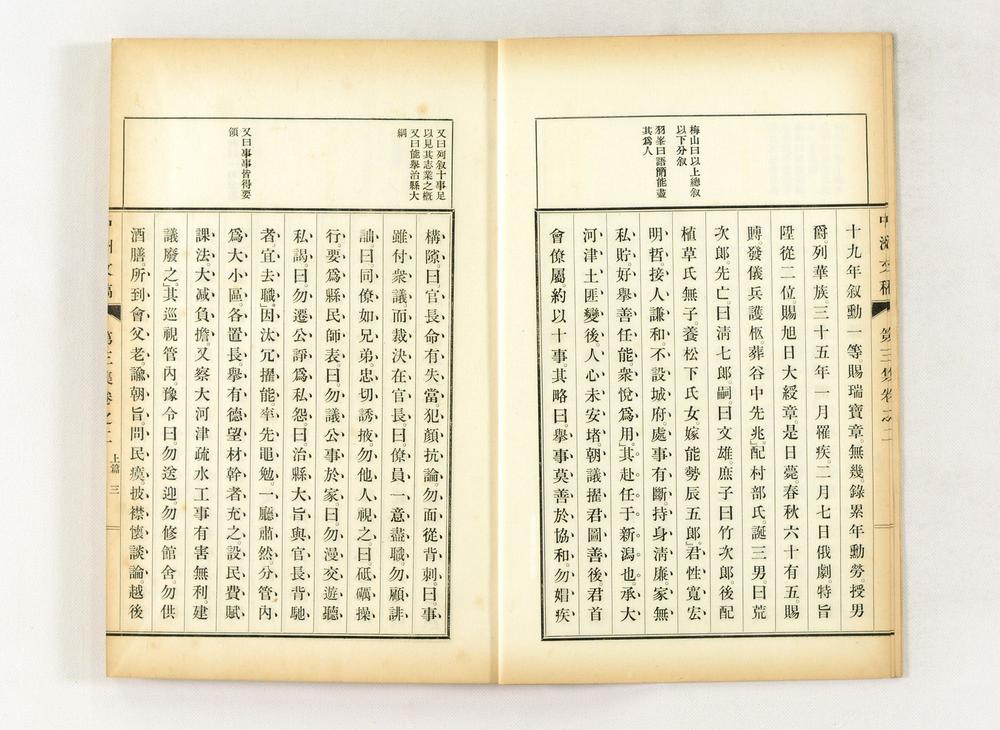 中洲文稿 第三集卷之二
梅山曰以上總敘
以下分敘
羽峯曰語簡能盡
其爲人
十九年叙勳一等。賜瑞寶章。無幾錄累年勳勞。授男
爵。列華族。三十五年一月罹疾。二月七日俄劇。特旨
陞從二位。賜旭日大綬章。是日薨。春秋六十有五。賜
賻。發儀兵護柩。葬谷中先兆。」配村部氏。誕三男。曰荒
次郎。先亡。曰淸七郎。嗣。曰文雄。庶子曰竹次郎。後配
植草氏無子。養松下氏女。嫁能勢辰五郎。」君性寬宏
明哲。接人謙和。不設城府。處事有斷。持身淸廉。家無
私貯。好擧善任能。衆悅爲用。」其赴任于新潟也。承大
河津土匪變後。人心未安堵。朝議擢君圖善後。君首
會僚屬。約以十事。其略曰。擧事莫善於協和。勿娼疾
又曰列敘十事足
以見其志業之概
又曰能擧治縣大
綱
又曰事事皆得要
領
構隙。曰。官長命有失當。犯顏抗論。勿面從背刺。曰。事
雖付衆議。而裁決在官長。曰。僚員一意盡職。勿顧誹
訕。曰。同僚如兄弟。忠切誘掖。勿他人視之。曰。砥礪操
行。要爲縣民師表。曰。勿議公事於家。曰。勿漫交遊聽
私謁。曰。勿遷公諍爲私怨。曰。治縣大旨與官長背馳
者。宜去職。」因汰冗擢能。率先黽勉。一廳肅然。分管內
爲大小區。各置長。擧有德望材幹者充之。設民費賦
課法。大減負擔。又察大河津疏水工事有害無利。建
議廢之。」其巡視管內。豫令曰。勿送迎。勿修館舍。勿供
酒膳。所到會父老。諭朝旨。問民瘼。披襟懷談論。越後
中洲文稿 第三集卷之二 上篇 三